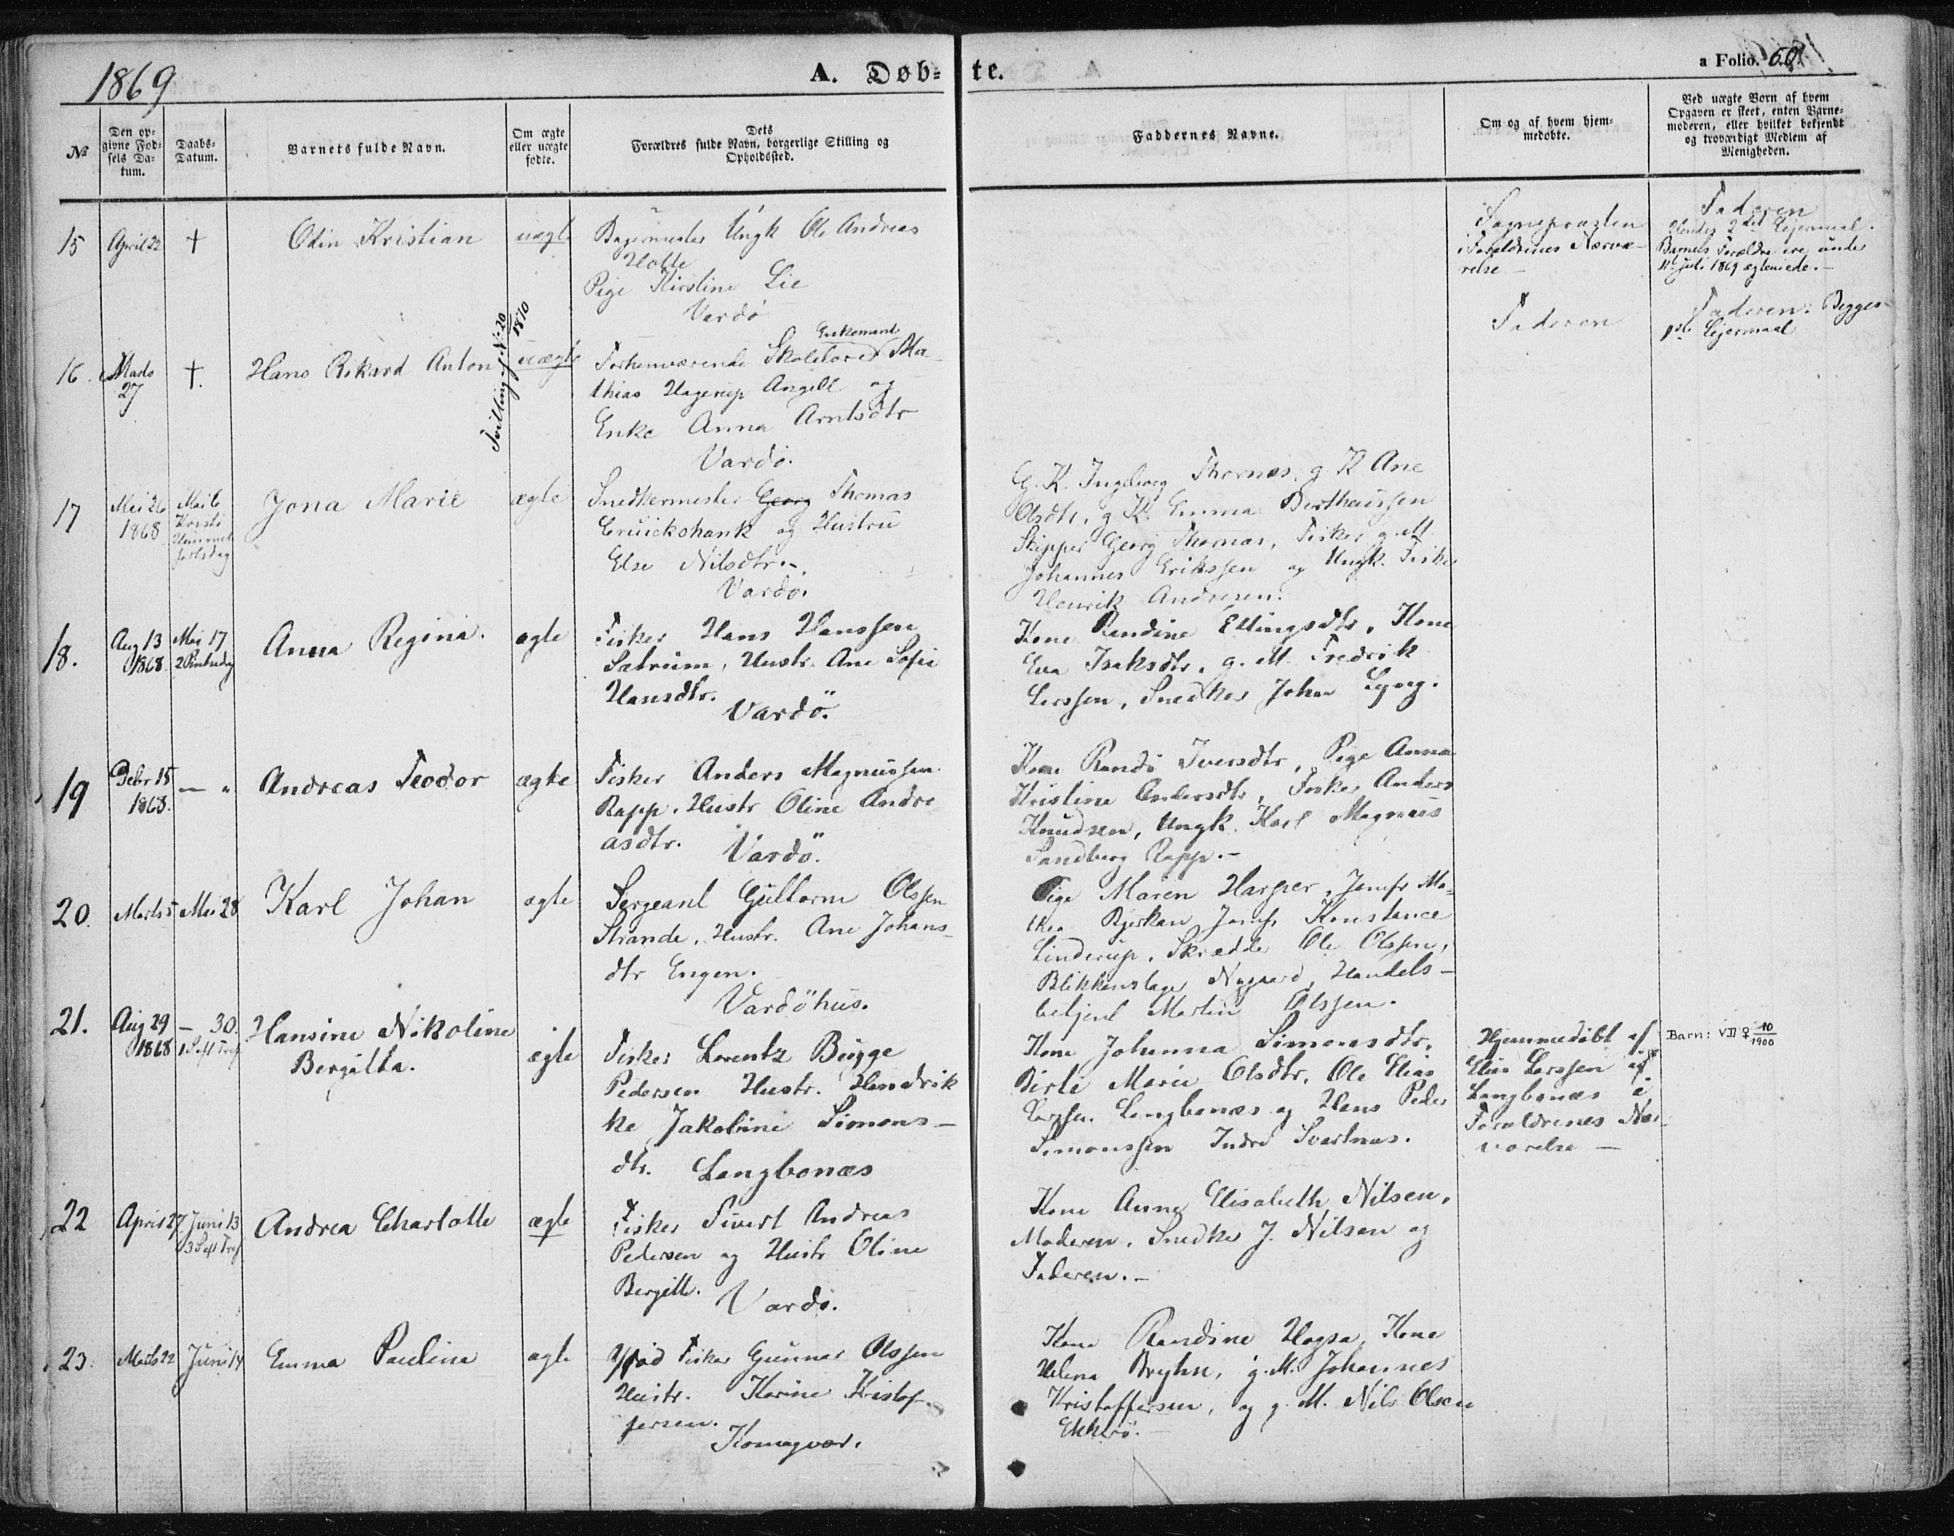 1869
A. Døb-te.
a Folio. 60
№
Den op-
givne Fød-
sels Da-
tum.
Daabs-
Datum.
Barnets fulde Navn.
Om ægte
eller uægte
fødte.
Dets
Forældres fulde Navn, borgerlige Stilling og
Opholdssted.
Faddernes Navne.
Om og af hvem hjem-
medøbte.
Ved uægte Børn af hvem
Opgaven er skeet, enten Barne-
moderen, eller hvilket bekjendt
og troværdigt Medlem af
Menigheden.
15
April 22
†
Odin Kristian
uægte
Bagermester Ungk Ole Andreas
Holte
Pige Kirstine Lie
Vardø
Sognepræsten
i Forældrenes Nærvæ-
relse
Faderen
2det Lejermaal.
Barnets Forældre ere under
11te Juli 1869 ægteviede.
16.
Marts
27
†.
Hans Rikard Anton
Tvilling af № 20
1870
uægte
Enkemand
Forhenværende Skolelærer Ma-
thias Hagerup Angell og
Enke Anna Arntsdtr
Vardö.
Faderen
Faderen: Begges
1ste Lejermaal
17
Mai 26
1868
Mai 6
Kristi
Himmel
fartsdag
Jona Marie
ægte
Snedkermester Georg Thomas
Cruickshank og Hustru
Else Nilsdtr.
Vardö.
G. K. Ingeborg Thomas, g K Ane
Olsdtr, g K. Emma Bertheussen
Skipper Georg Thomas, Fisker g. M.
Johannes Erikssen og Ungk. Fisker
Henrik Andresen.
18.
Aug 13
1868.
Mai 17
2 Pintsedag
Anna Regina.
ægte
Fisker Hans Hanssen
Sætrum, Hustr. Ane Sofie
Hansdtr.
Vardö.
Kone Randine Ellingsdtr, Kone
Eva Isaksdtr, g. M. Fredrik
Larssen, Snedker Johan Lyng.
19
Debr 15
1868.
— „
Andreas Teodor
ægte
Fisker Anders Magnussen
Rapp. Hustr Oline Andre-
asdtr.
Vardö.
Kone Randi Iversdtr, Pige Anna
Kristine Andersdtr, Fisker Anders
Knudsen, Ungk. Karl Magnus
Sandberg Rapp.
20.
Marts 5
Mai 28
Karl Johan
ægte
Sergeant Guttorm Olssen
Strande, Hustr. Ane Johans-
dtr Engen.
Vardöhus.
Pige Maren Harper, Jomfr Ma-
thea Bjerkan, Jomfr Konstance
Linderup, Skrædder Ole Olssen,
Blikkenslager Nygaard, Handels-
betjent Martin Olssen.
21.
Aug 29
1868
— 30.
1 S eft Tref
Hansine Nikoline
Bergitta.
ægte
Fisker Lorentz Bugge
Pedersen Hustr. Hendrik-
ke Jakobine Simons-
dtr. Langbunæs
Kone Johanna Simonsdtr,
Birte Marie Olsdtr, Ole Elias
Larssen Langbunæs og Hans Peder
Simonssen Indre Svartnæs.
Hjemmedöbt af
Elias Larssen af
Langbunæs i
Forældrenes Nær-
værelse —
Barn: VII ♀ 10/1900
22
April 27
Juni 13
3 S eft Tref
Andrea Charlotte
ægte
Fisker Sivert Andreas
Pedersen og Hustr Oline
Bergitte.
Vardö.
Kone Anne Elisabeth Nilsen,
Moderen, Snedker J. Nilsen og
Faderen.
23.
Marts 22
Juni 14
Emma Paulina
ægte
Fisker Gunnar Olssen
Hustr. Karine Kristof-
fersen.
Komagvær.
Kone Randine Hogsa, Kone
Helena Bryhn, g. M. Johannes
Kristoffersen, og g. M. Nils Olsen
Ekkerø.